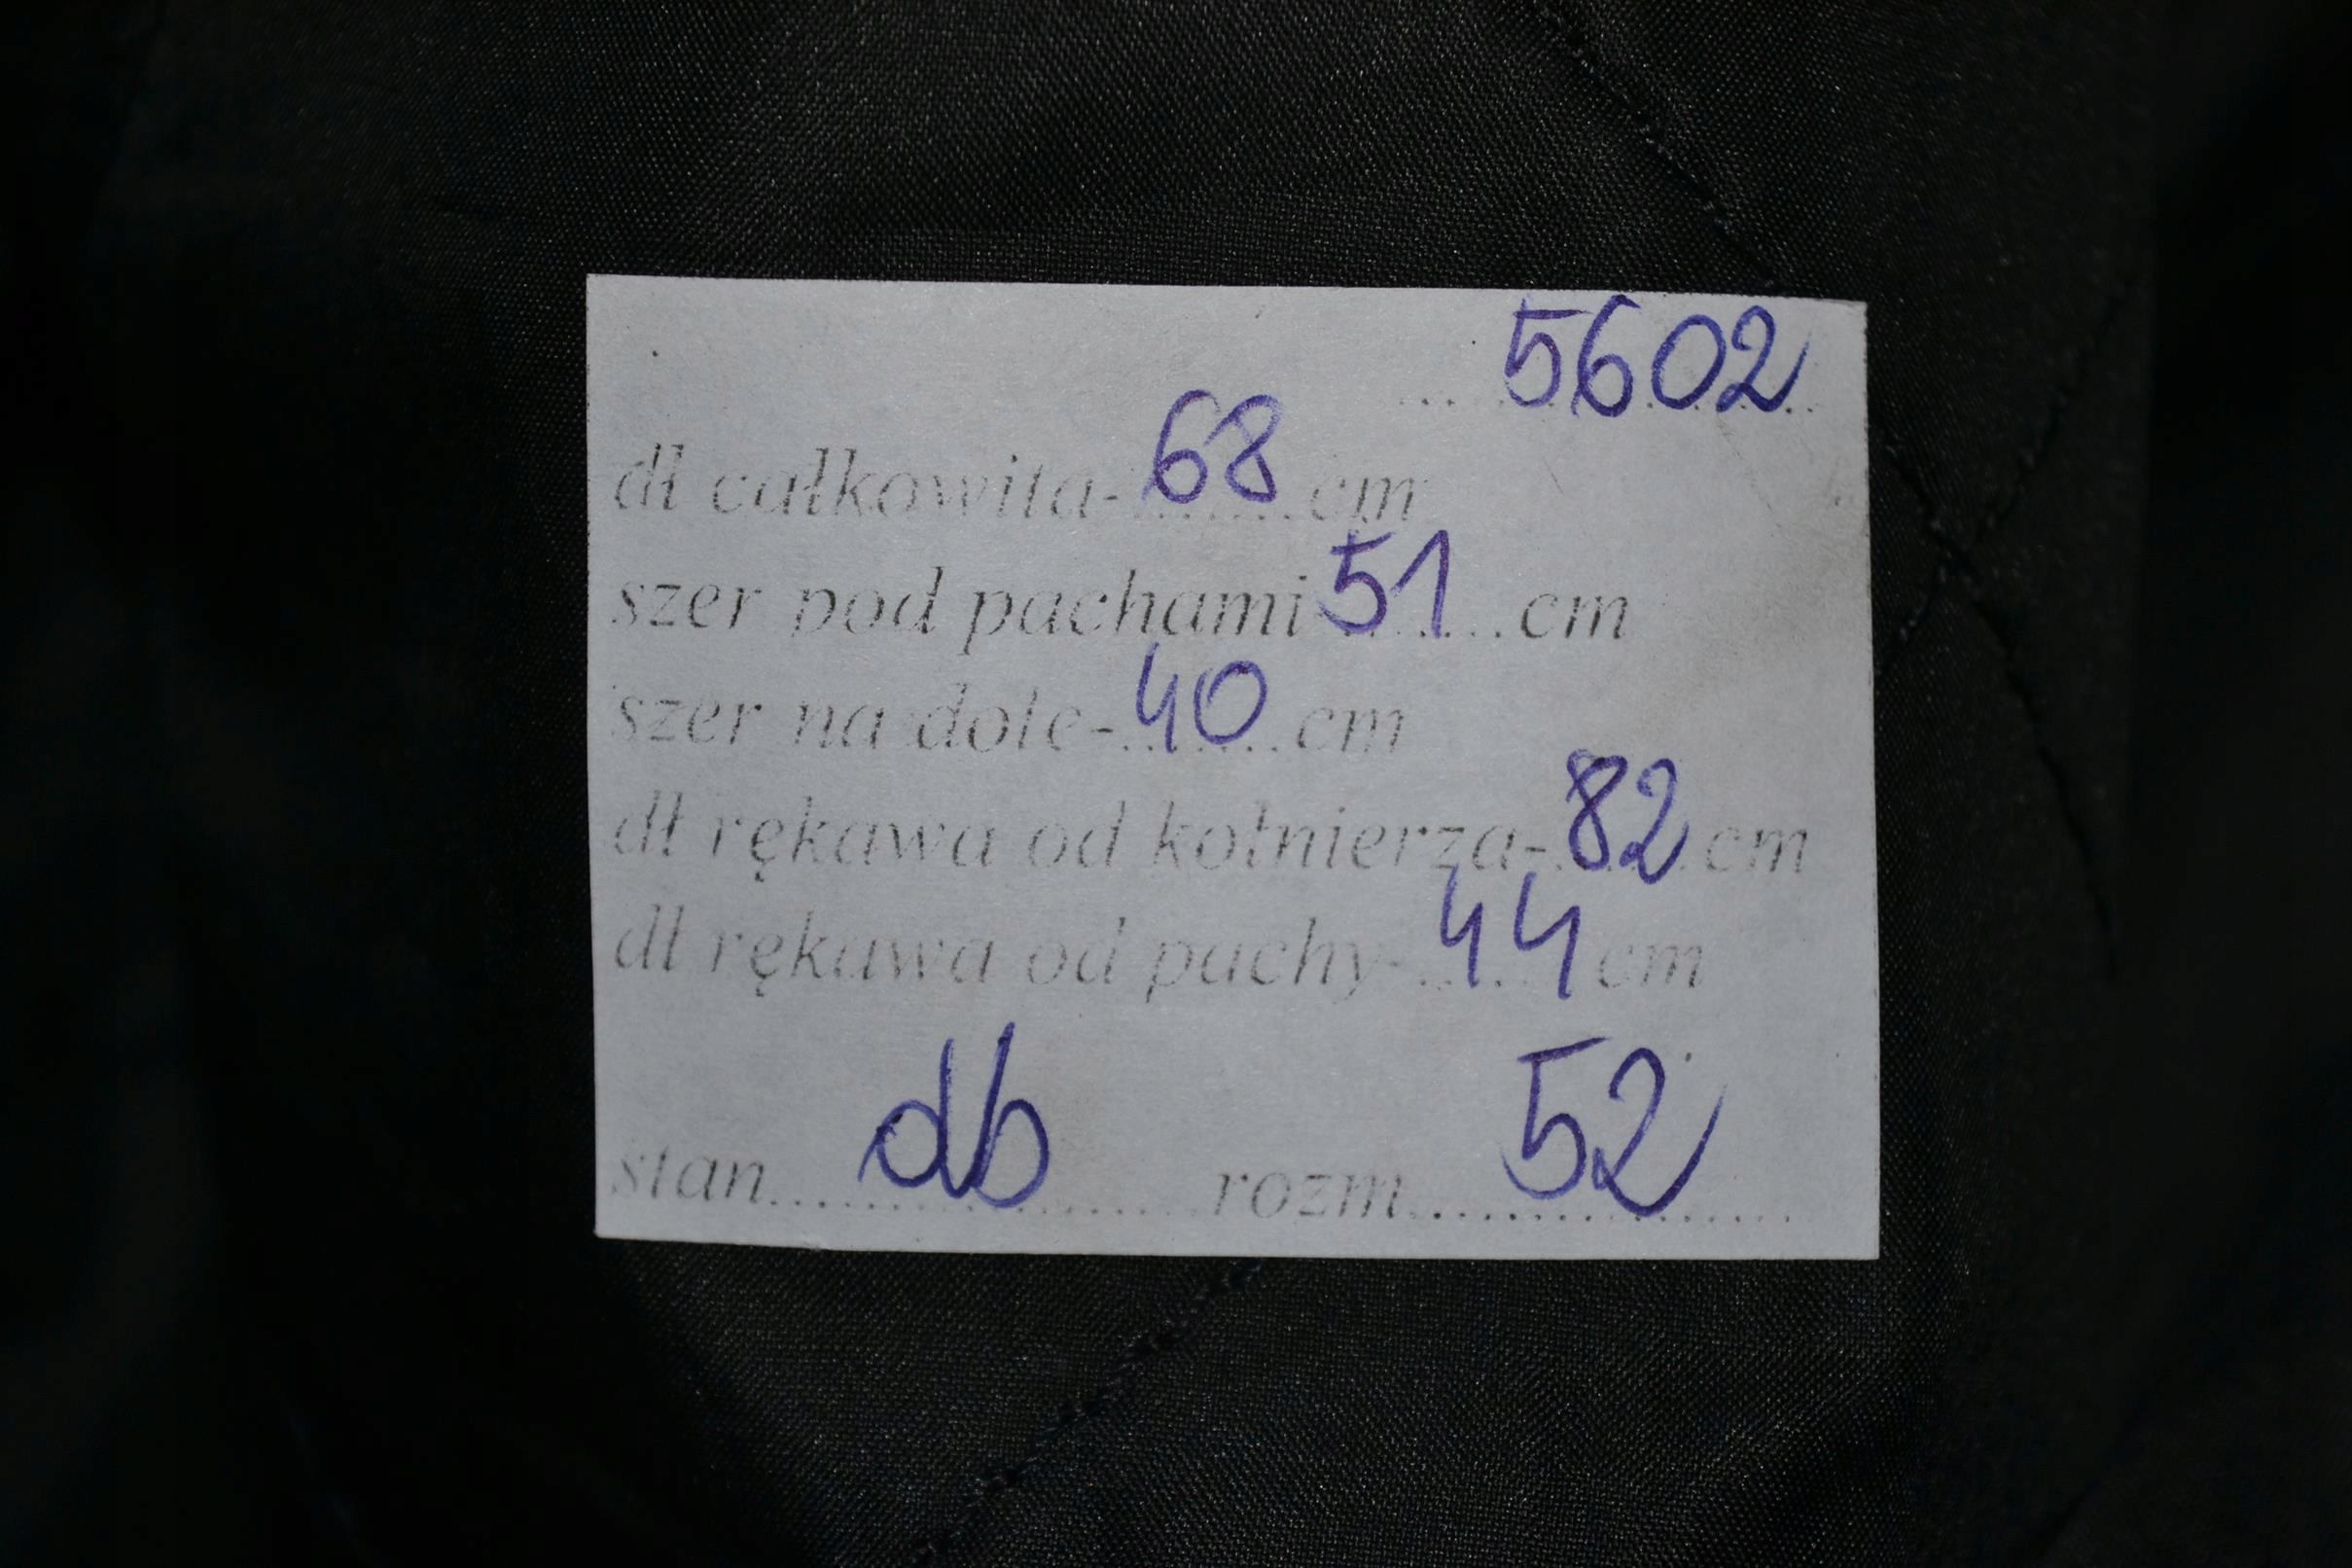 5602
dł całkowita- 68 cm
szer pod pachami 51 cm
szer na dole- 40 cm
dł rękawa od kołnierza- 82 cm
dł rękawa od pachy- 44 cm
stan.....db.....rozm.....52.....